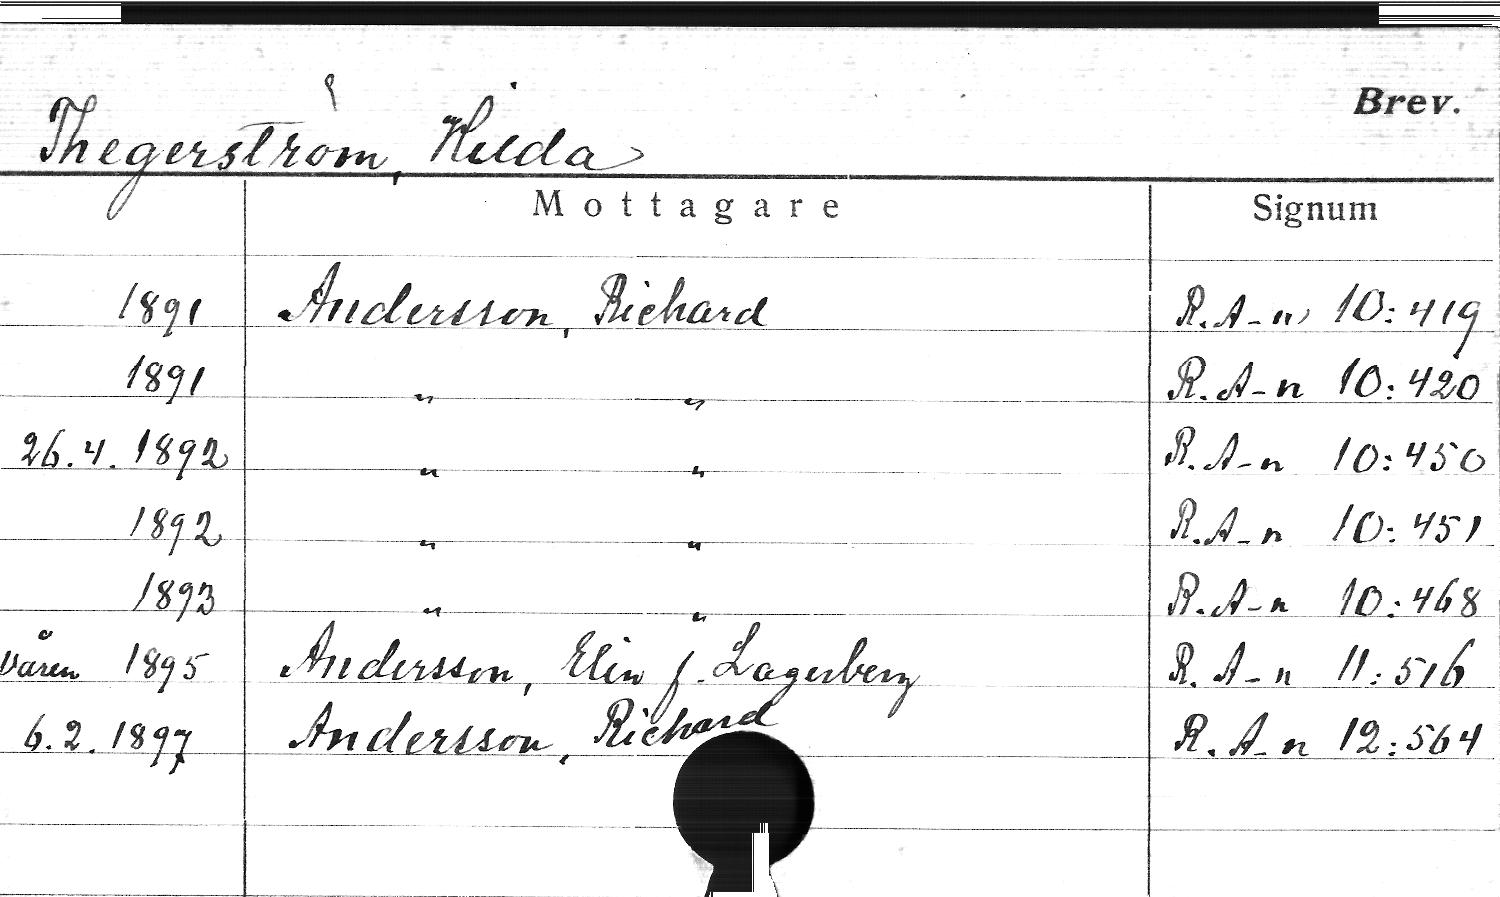 Brev.
Thegerström, Hilda
Mottagare Signum
1891 Andersson, Richard R. A-n 10:419
1891 " " R. A-n 10:420
26.4.1892 " " R. A-n 10:450
1892 " " R. A-n 10:451
1893 " " R. A-n 10:468
Våren 1895 Andersson, Elin f. Lagerberg R. A-n 11:516
6.2.1897 Andersson, Richard R. A-n 12:564